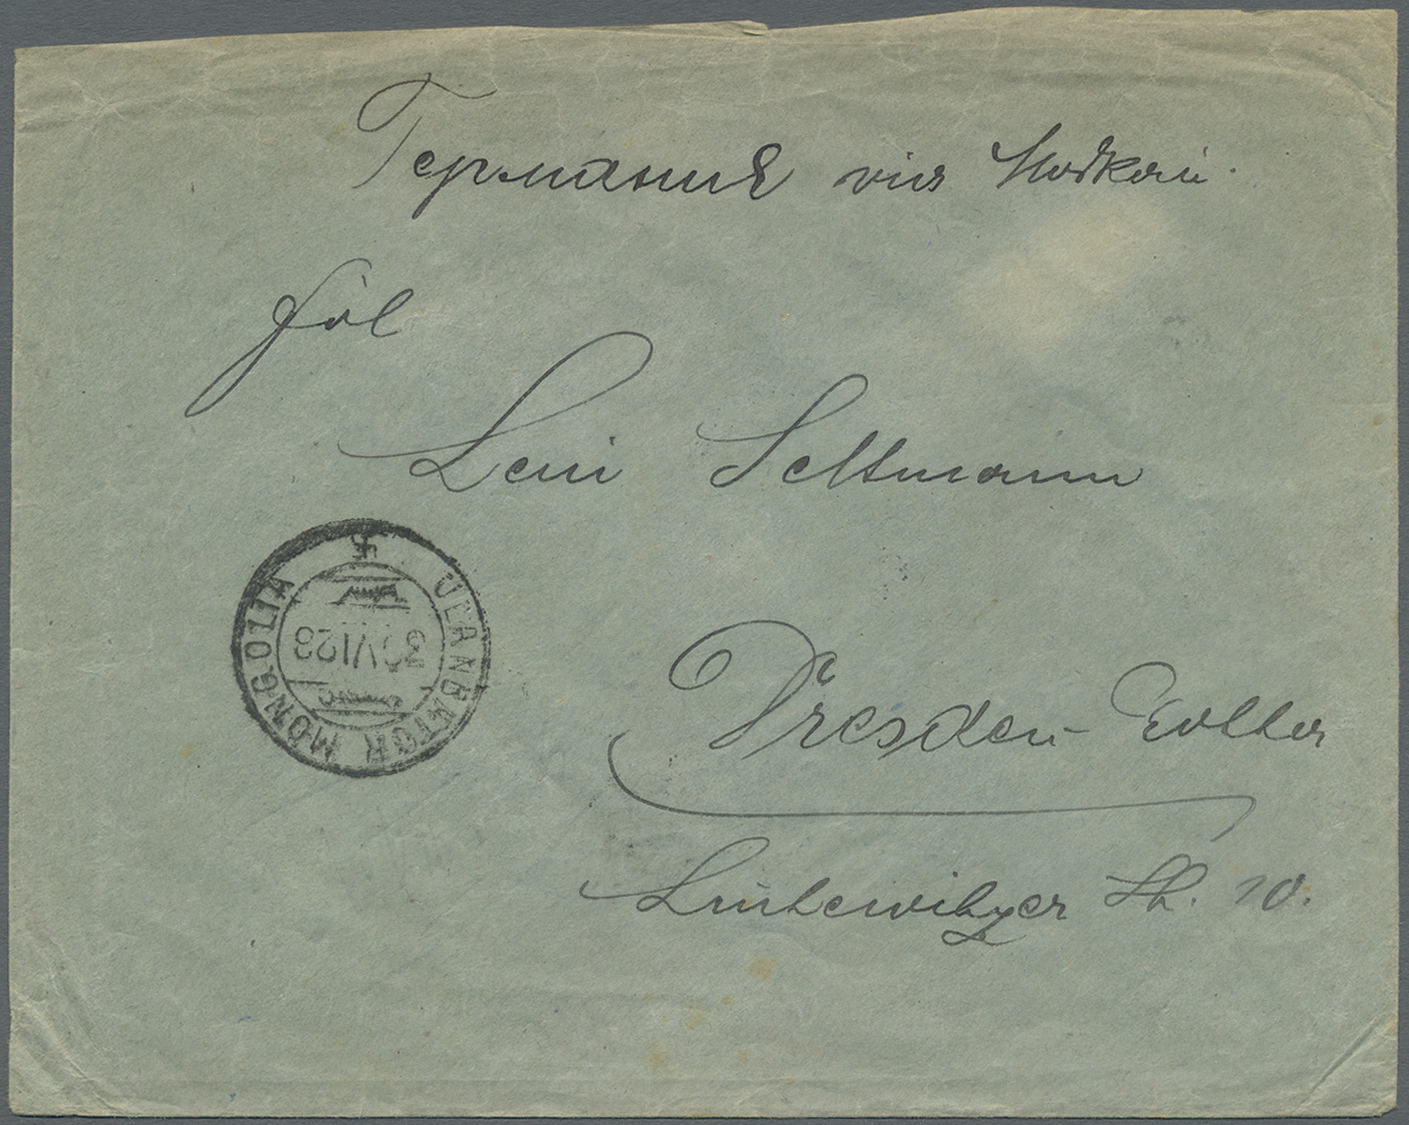 Германия via Moskau.
Frl
Leni Seltmann
Dresden-Cotta
Leutewitzer Str. 10.
ULANBATOR MONGOLIA
30 VI 28